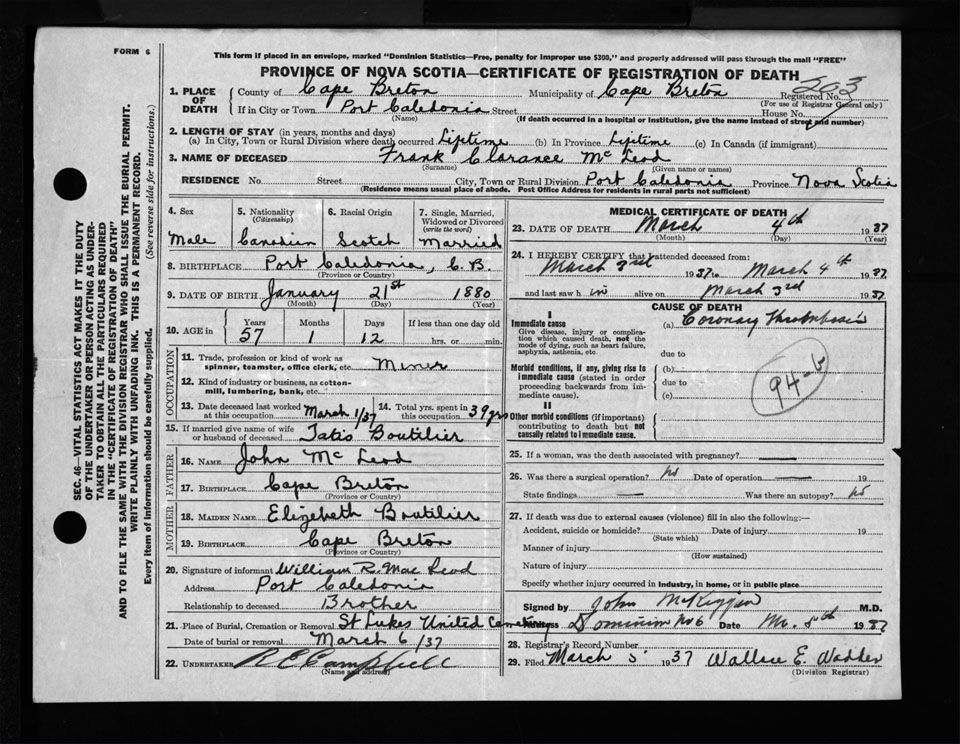 FORM 6
This form if placed in an envelope, marked "Dominion Statistics—Free, penalty for improper use $300," and properly addressed will pass through the mail "FREE"
PROVINCE OF NOVA SCOTIA—CERTIFICATE OF REGISTRATION OF DEATH
203
1. PLACE OF DEATH
County of Cape Breton Municipality of Cape Breton Registered No.
(For use of Registrar General only)
If in City or Town Port Caledonia Street House No.
(Name) (If death occurred in a hospital or institution, give the name instead of street and number)
2. LENGTH OF STAY (in years, months and days)
(a) In City, Town or Rural Division where death occurred Lifetime (b) In Province Lifetime (c) In Canada (if immigrant)
3. NAME OF DECEASED Frank Clarance Mc Leod
(Surname) (Given name or names)
RESIDENCE No. Street City, Town or Rural Division Port Caledonia Province Nova Scotia
(Residence means usual place of abode. Post Office Address for residents in rural parts not sufficient)
4. Sex Male
5. Nationality (Citizenship) Canadian
6. Racial Origin Scotch
7. Single, Married, Widowed or Divorced (write the word) Married
8. BIRTHPLACE Port Caledonia, C.B.
(Province or Country)
9. DATE OF BIRTH January 21st 1880
(Month) (Day) (Year)
10. AGE in Years Months Days If less than one day old
57 1 12 hrs. or min.
OCCUPATION
11. Trade, profession or kind of work as spinner, teamster, office clerk, etc. Miner
12. Kind of industry or business, as cotton-mill, lumbering, bank, etc.
13. Date deceased last worked at this occupation March 1/37
14. Total yrs. spent in this occupation 39 yrs
15. If married give name of wife or husband of deceased Boutilier
FATHER
16. NAME John Mc Leod
17. BIRTHPLACE Cape Breton
(Province or Country)
MOTHER
18. MAIDEN NAME Elizebeth Boutilier
19. BIRTHPLACE Cape Breton
(Province or Country)
20. Signature of informant William R. Mac Leod
Address Port Caledonia
Relationship to deceased Brother
21. Place of Burial, Cremation or Removal St Lukes United Cemetery
Date of burial or removal March 6/37
22. UNDERTAKER R E Campbell
(Name and address)
MEDICAL CERTIFICATE OF DEATH
23. DATE OF DEATH March 4th 1937
(Month) (Day) (Year)
24. I HEREBY CERTIFY that I attended deceased from:
March 3rd 1937 to March 4th 1937
and last saw h im alive on March 3rd 1937
CAUSE OF DEATH
I
Immediate cause (a) Coronary Thrombosis
Give disease, injury or complication which caused death, not the mode of dying, such as heart failure, asphyxia, asthenia, etc.
due to
Morbid conditions, if any, giving rise to immediate cause (stated in order proceeding backwards from immediate cause).
(b)
due to
(c)
94-b
II
Other morbid conditions (if important) contributing to death but not causally related to immediate cause.
25. If a woman, was the death associated with pregnancy? —
26. Was there a surgical operation? no Date of operation — 19
State findings — Was there an autopsy? no
27. If death was due to external causes (violence) fill in also the following:—
Accident, suicide or homicide? Date of injury 19
(State which)
Manner of injury
(How sustained)
Nature of injury
Specify whether injury occurred in industry, in home, or in public place
Signed by John M.D.
Dominion No 6 Date 1937
28. Registrar's Record Number
29. Filed March 5 1937 Wallace E.
(Division Registrar)
SEC. 46—VITAL STATISTICS ACT MAKES IT THE DUTY
OF THE UNDERTAKER OR PERSON ACTING AS UNDER-
TAKER TO OBTAIN ALL THE PARTICULARS REQUIRED
IN THE "CERTIFICATE OF REGISTRATION OF DEATH"
AND TO FILE THE SAME WITH THE DIVISION REGISTRAR WHO SHALL ISSUE THE BURIAL PERMIT.
WRITE PLAINLY WITH UNFADING INK. THIS IS A PERMANENT RECORD.
Every item of information should be carefully supplied. (See reverse side for instructions.)